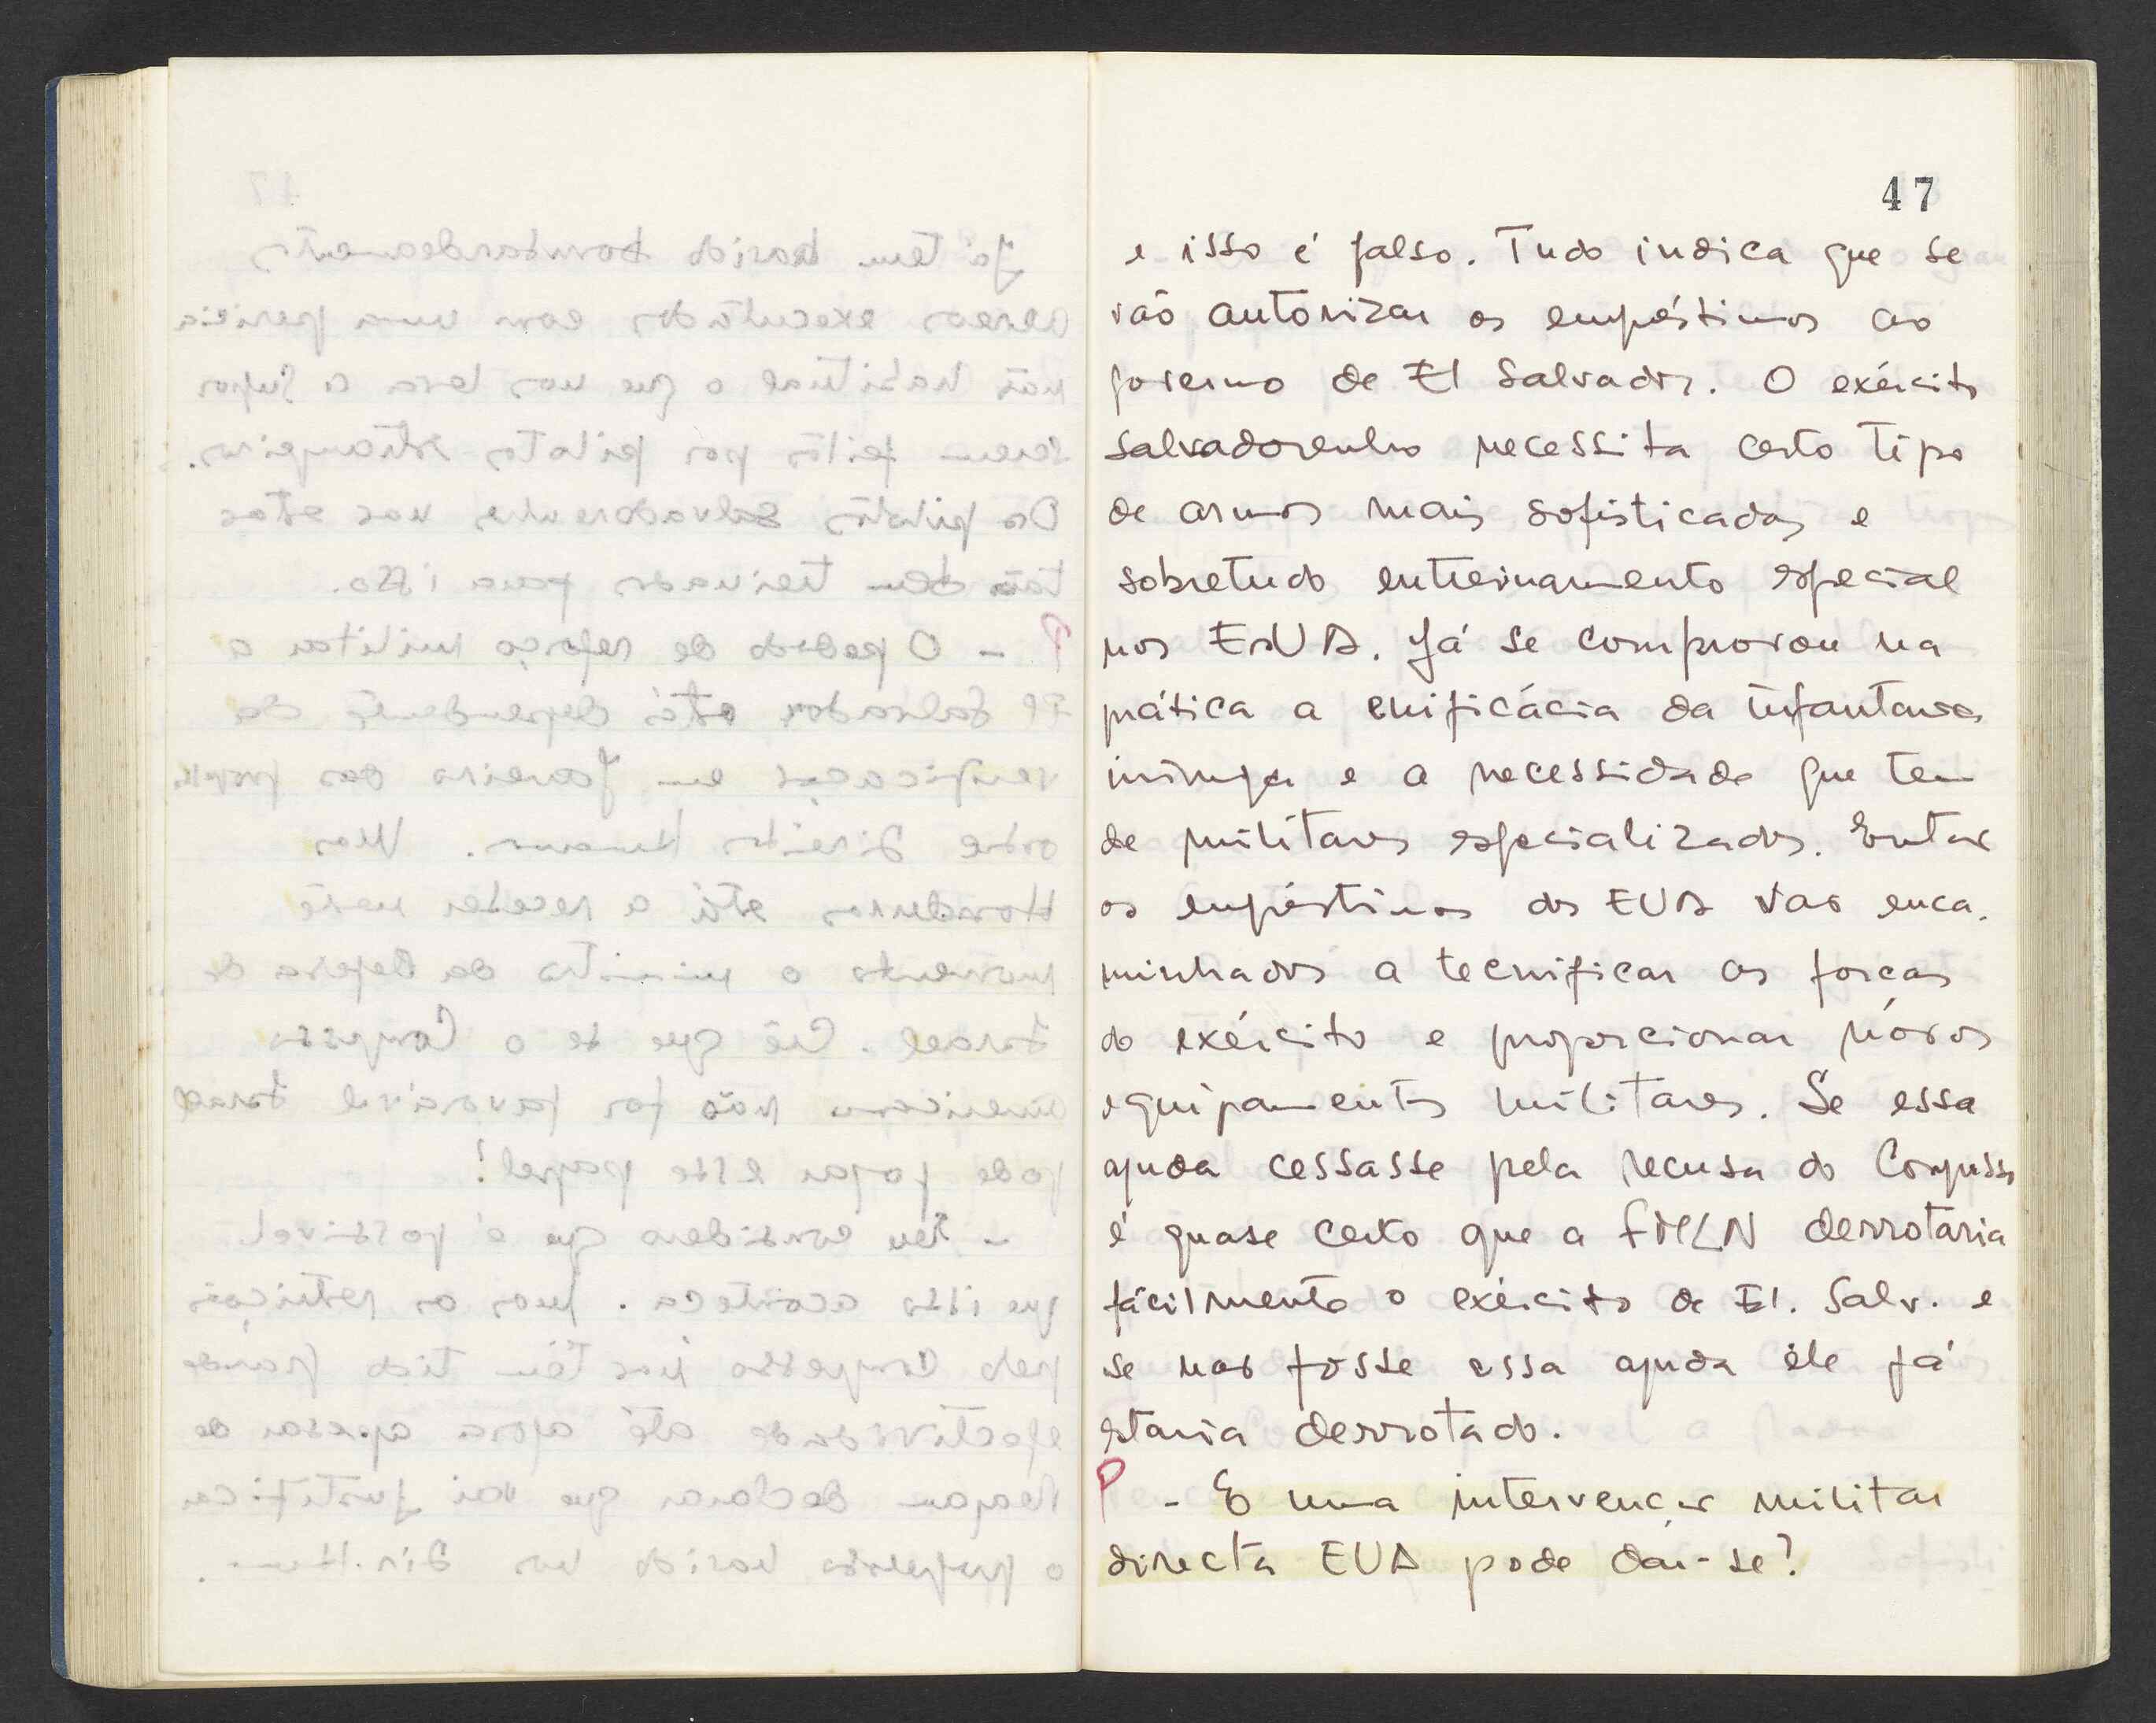 47
e isso é falso. Tudo indica que se
vão autorizar os empéstimos ao
governo de El Salvador. O exército
salvadorenho necessita certo tipo
de armas mais sofisticadas e
sobretudo entreinamento especial
nos EUA. Já se comprovou na
prática a da infantaria
inimiga e a necessidade que tem
de militares especializados. Entao
os empéstimos dos EUA vao enca-
minhados a tecnificar as forcas
do exército e proporcionar nóvos
equipamentos militares. Se essa
ajuda cessasse pela recusa do Congresso
é quase certo que a FMLN derrotaria
fácilmente o exército de El. Salv. e
se nao fôsse essa ajuda êle já
estaria derrotado.
P - E uma intervençao militar
directa EUA pode dar-se?